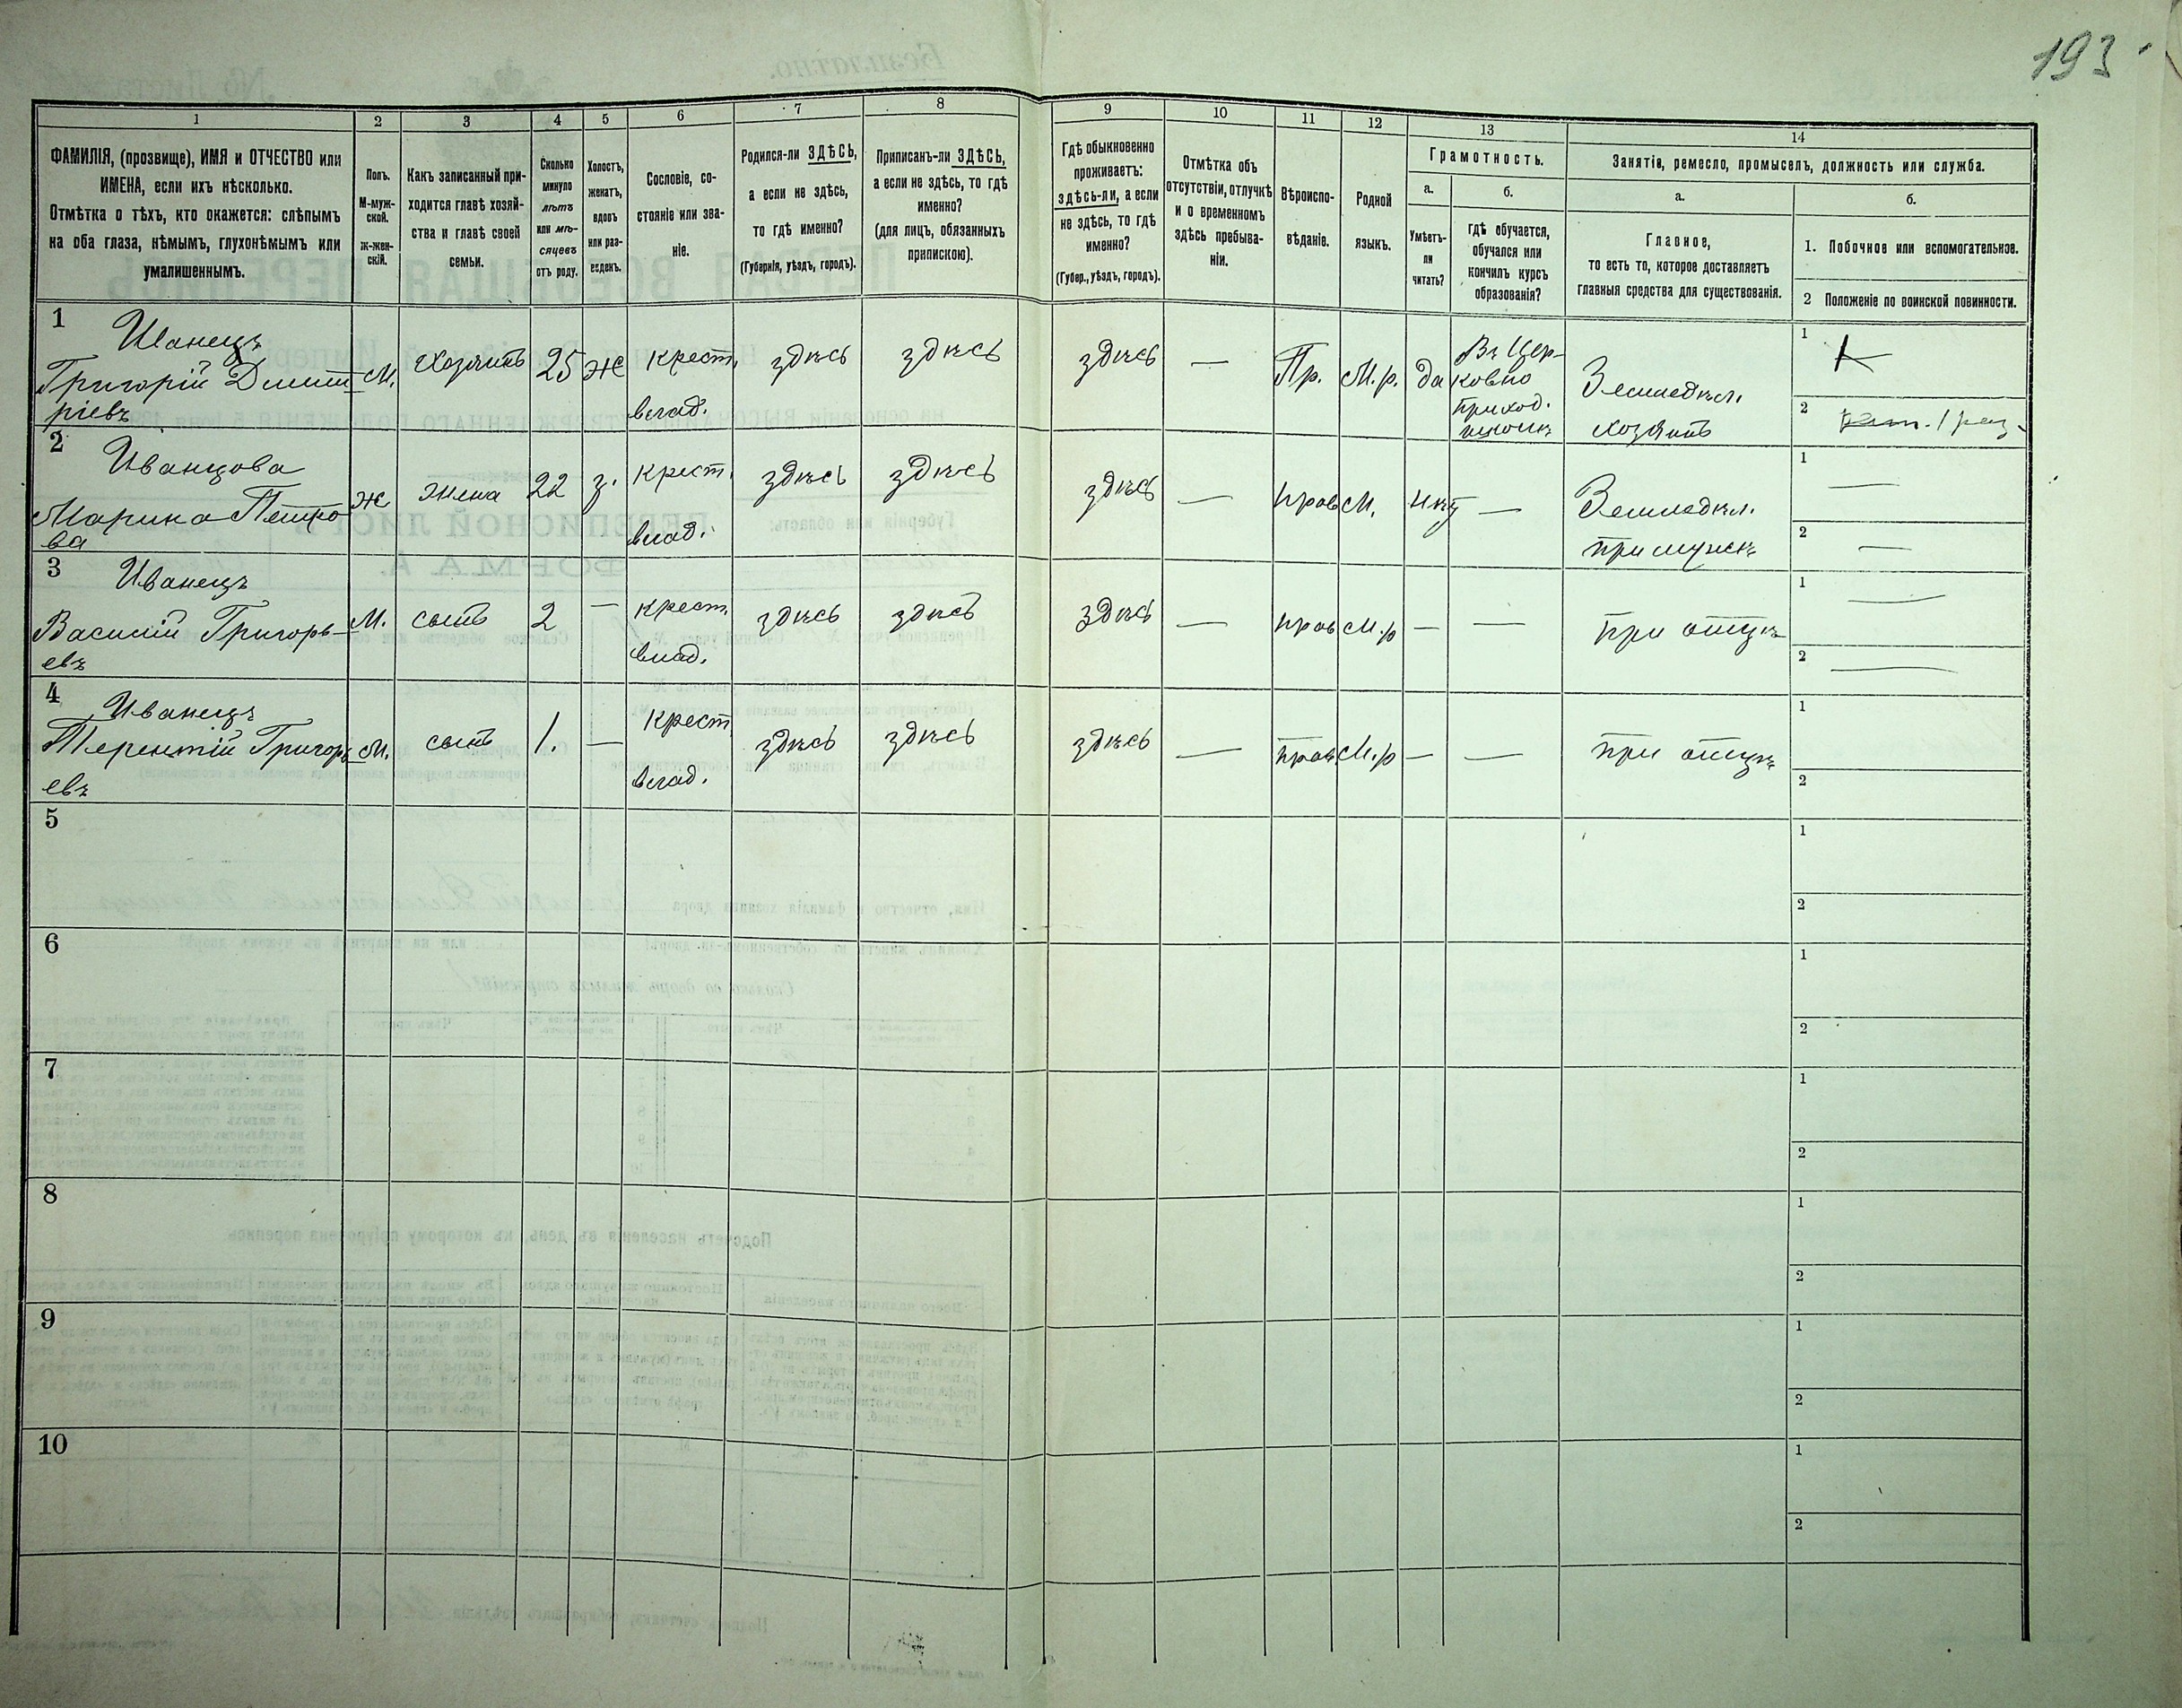 193
1 2 3 4 5 6 7 8 9 10 11 12 13 14
ФАМИЛІЯ, (прозвище), ИМЯ и ОТЧЕСТВО или
ИМЕНА, если ихъ нѣсколько.
Отмѣтка о тѣхъ, кто окажется: слѣпымъ
на оба глаза, нѣмымъ, глухонѣмымъ или
умалишеннымъ.
Полъ.
М-муж-
ской.
Ж-жен-
скій.
Какъ записанный при-
ходится главѣ хозяй-
ства и главѣ своей
семьи.
Сколько
минуло
лѣтъ
или мѣ-
сяцевъ
отъ роду.
Холостъ,
женатъ,
вдовъ
или раз-
веденъ.
Сословіе, со-
стояніе или зва-
ніе.
Родился-ли ЗДѢСЬ,
а если не здѣсь,
то гдѣ именно?
(Губернія, уѣздъ, городъ).
Приписанъ-ли ЗДѢСЬ,
а если не здѣсь, то гдѣ
именно?
(для лицъ, обязанныхъ
припискою).
Гдѣ обыкновенно
проживаетъ:
здѣсь-ли, а если
не здѣсь, то гдѣ
именно?
(Губер., уѣздъ, городъ).
Отмѣтка объ
отсутствіи, отлучкѣ
и о временномъ
здѣсь пребыва-
ніи.
Вѣроиспо-
вѣданіе.
Родной
языкъ.
Грамотность.
а.
Умѣетъ-
ли
читать?
б.
гдѣ обучается,
обучался или
кончилъ курсъ
образованія?
Занятіе, ремесло, промыселъ, должность или служба.
а.
Главное,
то есть то, которое доставляетъ
главныя средства для существованія.
б.
1. Побочное или вспомогательное.
2 Положеніе по воинской повинности.
1
Иванецъ
Григорій Димит
ріевъ
М.
хозяинъ
25
Ж
крест.
влад.
здѣсь
здѣсь
здѣсь
—
Пр.
М.р.
да
Въ Цер-
ковно
приход.
школѣ
Земледѣл.
хозяинъ
1
2
2
Иванцова
Марина Петро
ва
Ж
жена
22
з.
крест.
влад.
здѣсь
здѣсь
здѣсь
—
прав
М.
нѣт
—
Земледѣл.
при мужѣ
1 —
2 —
3
Иванецъ
Василій Григорь-
евъ
М.
сынъ
2
—
крест.
влад.
здѣсь
здѣсь
здѣсь
—
прав
М.р
—
—
при отцѣ
1 —
2 —
4
Иванецъ
Терентій Григорь
евъ
М.
сынъ
1.
—
крест
влад.
здѣсь
здѣсь
здѣсь
—
прав
М.р
—
—
при отцѣ
1
2
5
1
2
6
1
2
7
1
2
8
1
2
9
1
2
10
1
2